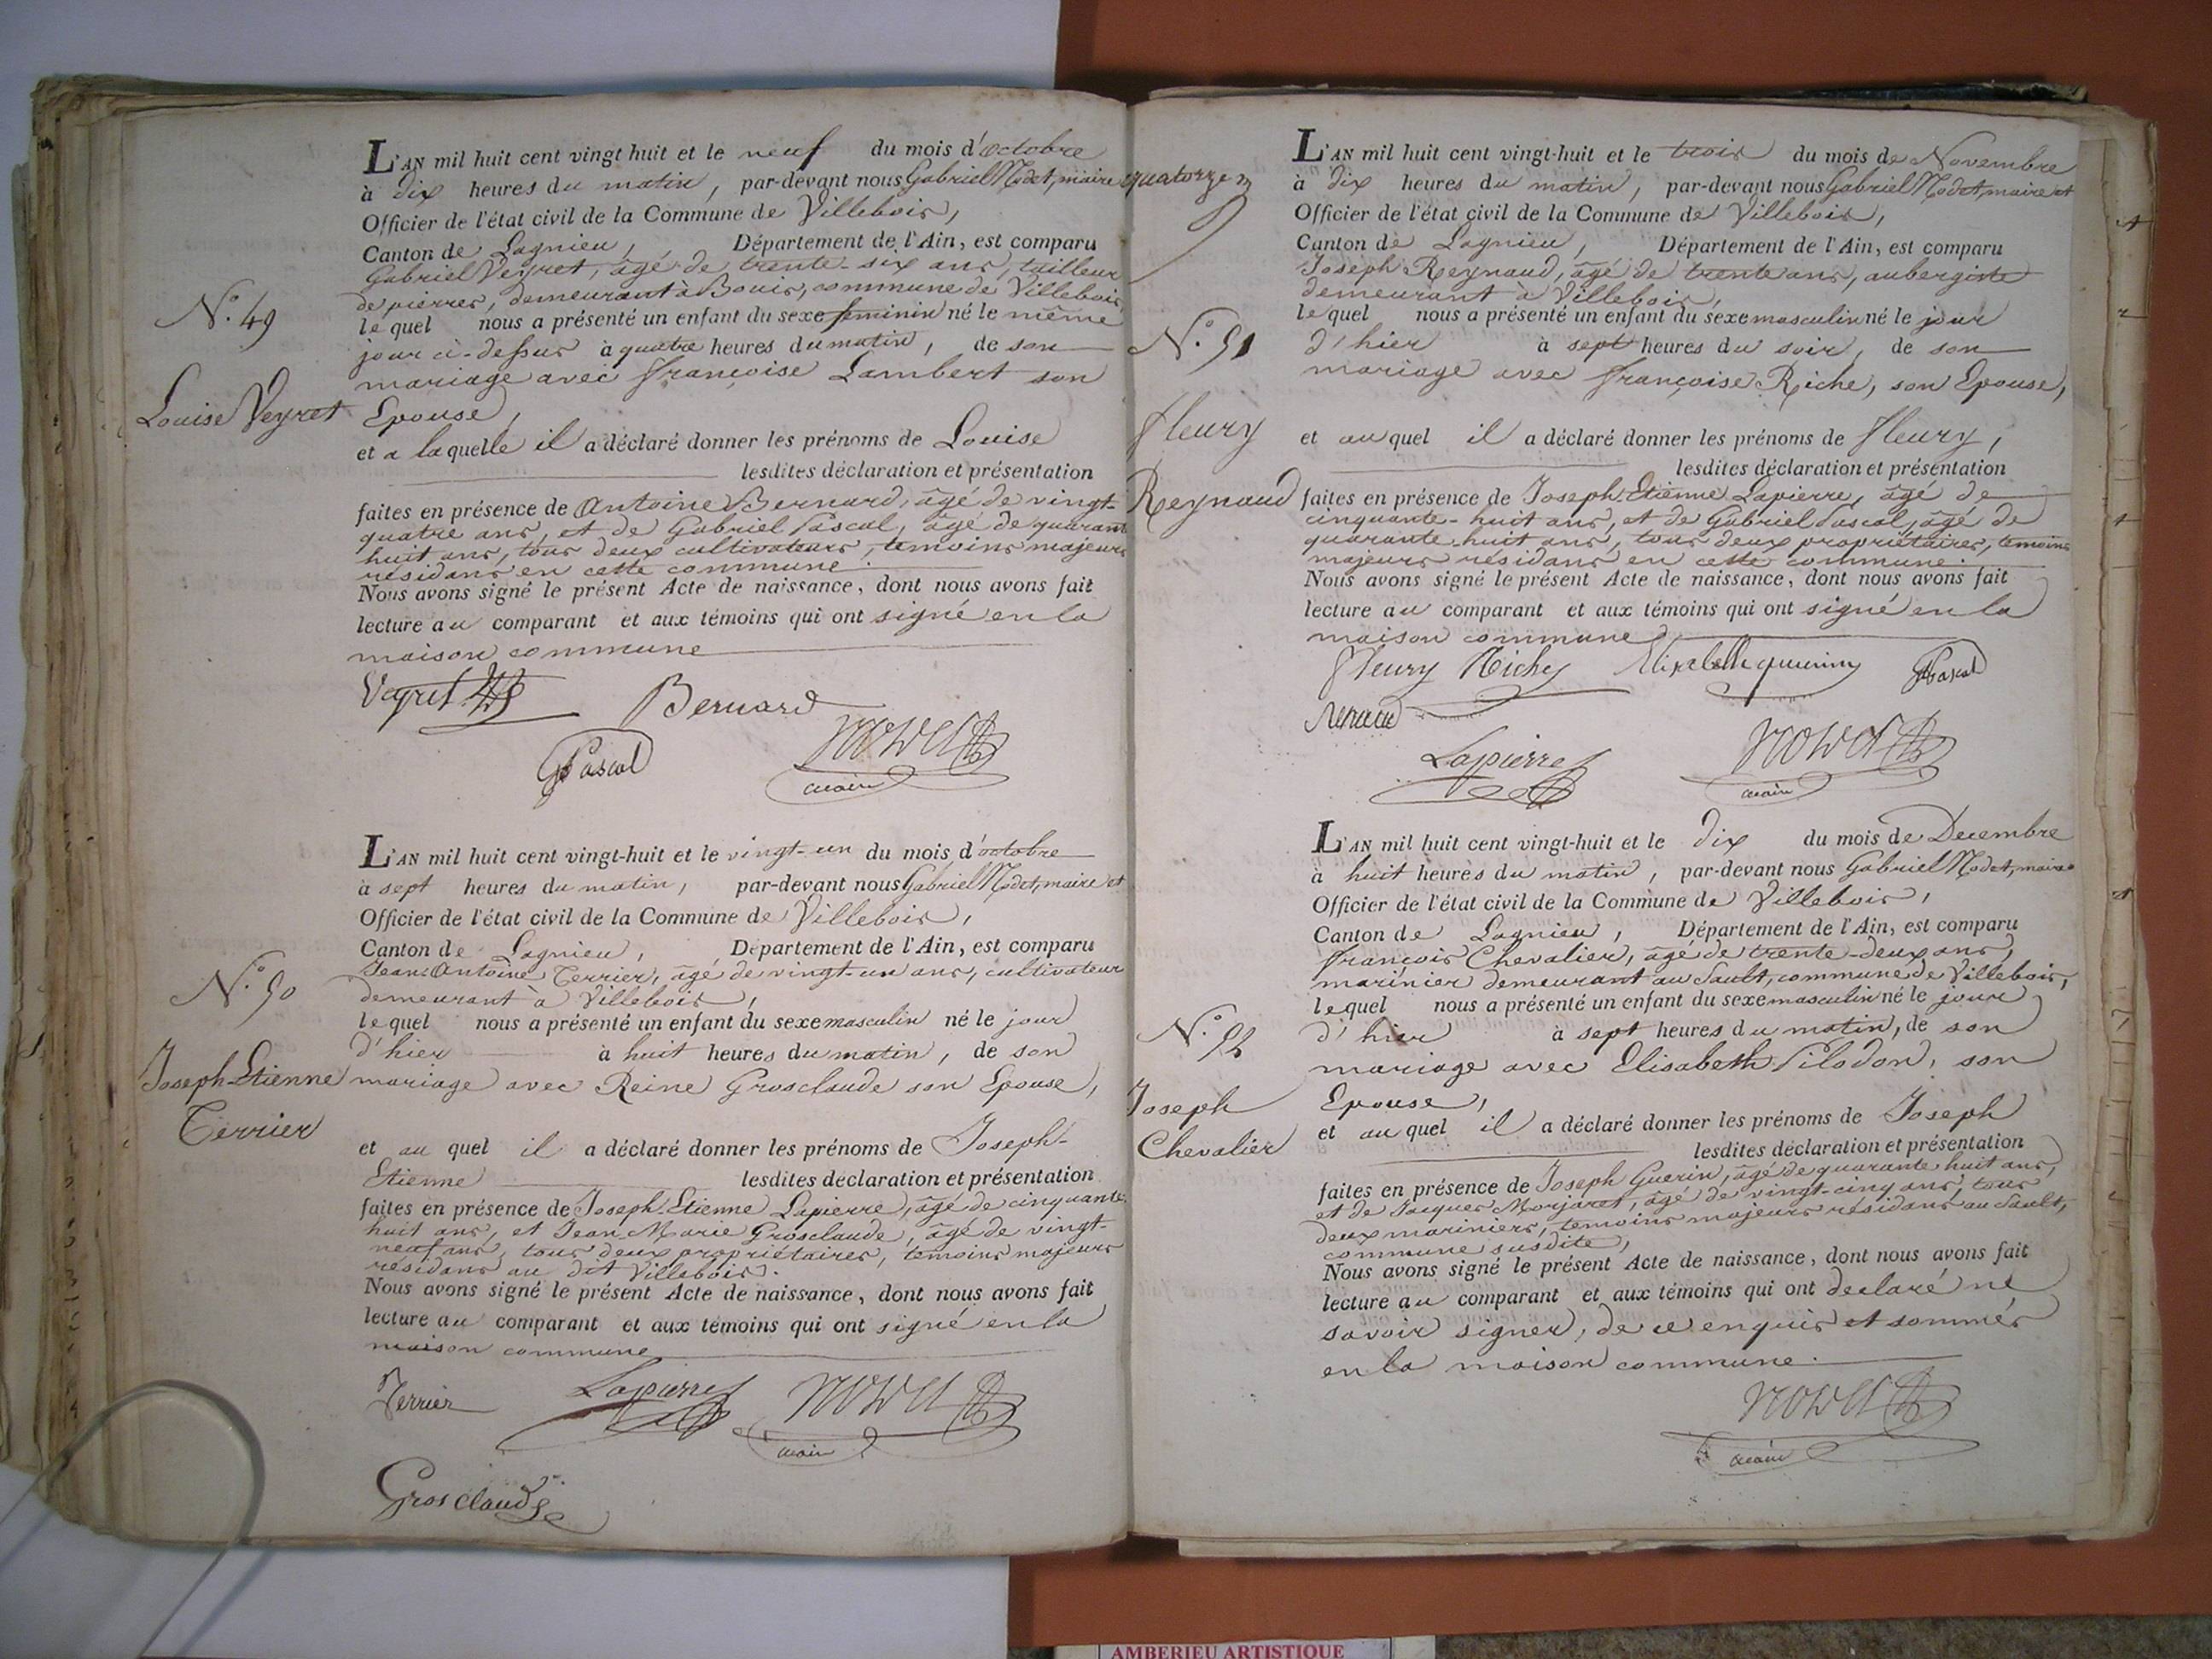 L'AN mil huit cent vingt huit et le neuf du mois d'octobre
à dix heures du matin, par-devant nous Gabriel Modet, maire
Officier de l'état civil de la Commune de Villebois,
Canton de Lagnieu, Département de l'Ain, est comparu
Gabriel Veyret, âgé de trente-six ans, tailleur
de pierres, demeurant à Bouis, commune de Villebois,
le quel nous a présenté un enfant du sexe feminin né le même
jour ci-dessus à quatre heures du matin, de son
mariage avec françoise Lambert son
Epouse,
et a laquelle il a déclaré donner les prénoms de Louise
lesdites déclaration et présentation
faites en présence de Antoine Bernard, âgé de vingt-
quatre ans, et de Gabriel Pascal, âgé de quarante
huit ans, tous deux cultivateurs, temoins majeurs
résidans en cette commune.
Nous avons signé le présent Acte de naissance, dont nous avons fait
lecture au comparant et aux témoins qui ont signé en la
maison commune
N.° 49
Louise Veyret
Veyret
Bernard
GPascal
maire
L'AN mil huit cent vingt-huit et le vingt-un du mois d'octobre
à sept heures du matin, par-devant nous Gabriel Modet, maire et
Officier de l'état civil de la Commune de Villebois,
Canton de Lagnieu, Département de l'Ain, est comparu
Jean-Antoine Terrier, âgé de vingt-un ans, cultivateur
demeurant à Villebois,
le quel nous a présenté un enfant du sexe masculin né le jour
d'hier à huit heures du matin, de son
mariage avec Reine Grosclaude son Epouse,
et au quel il a déclaré donner les prénoms de Joseph-
Etienne lesdites déclaration et présentation
faites en présence de Joseph-Etienne Lapierre, âgé de cinquante-
huit ans, et Jean-Marie Grosclaude, âgé de vingt-
neuf ans, tous deux propriétaires, témoins majeurs
résidans au dit Villebois.
Nous avons signé le présent Acte de naissance, dont nous avons fait
lecture au comparant et aux témoins qui ont signé en la
maison commune
N.° 50
Joseph-Etienne
Terrier
Terrier
Lapierre
maire
Grosclaude
quatorze
L'AN mil huit cent vingt-huit et le trois du mois de Novembre
à dix heures du matin, par-devant nous Gabriel Modet, maire et
Officier de l'état civil de la Commune de Villebois,
Canton de Lagnieu, Département de l'Ain, est comparu
Joseph Reynaud, âgé de trente ans, aubergiste
demeurant à Villebois,
le quel nous a présenté un enfant du sexe masculin né le jour
d'hier à sept heures du soir, de son
mariage avec françoise Riche, son Epouse,
et au quel il a déclaré donner les prénoms de fleury,
lesdites déclaration et présentation
faites en présence de Joseph-Etienne Lapierre, âgé de
cinquante-huit ans, et de Gabriel Pascal, âgé de
quarante-huit ans, tous deux propriétaires, temoins
majeurs résidans en cette commune.
Nous avons signé le présent Acte de naissance, dont nous avons fait
lecture au comparant et aux témoins qui ont signé en la
maison commune
N.° 51
fleury
Reynaud
fleury Riche
GPascal
Lapierre
maire
L'AN mil huit cent vingt-huit et le dix du mois de Decembre
à huit heures du matin, par-devant nous Gabriel Modet, maire
Officier de l'état civil de la Commune de Villebois,
Canton de Lagnieu, Département de l'Ain, est comparu
françois Chevalier, âgé de trente-deux ans,
marinier demeurant au Sault, commune de Villebois,
le quel nous a présenté un enfant du sexe masculin né le jour
d'hier à sept heures du matin, de son
mariage avec Elisabeth Pilodon, son
Epouse,
et au quel il a déclaré donner les prénoms de Joseph
lesdites déclaration et présentation
faites en présence de Joseph Guerin, âgé de quarante huit ans,
et de Jacques Morjaret, âgé de vingt-cinq ans, tous
deux mariniers, temoins majeurs résidans au Sault,
commune susdite,
Nous avons signé le présent Acte de naissance, dont nous avons fait
lecture au comparant et aux témoins qui ont declaré ne
savoir signer, de ce enquis et sommés
en la maison commune.
N.° 52
Joseph
Chevalier
maire
AMBERIEU ARTISTIQUE